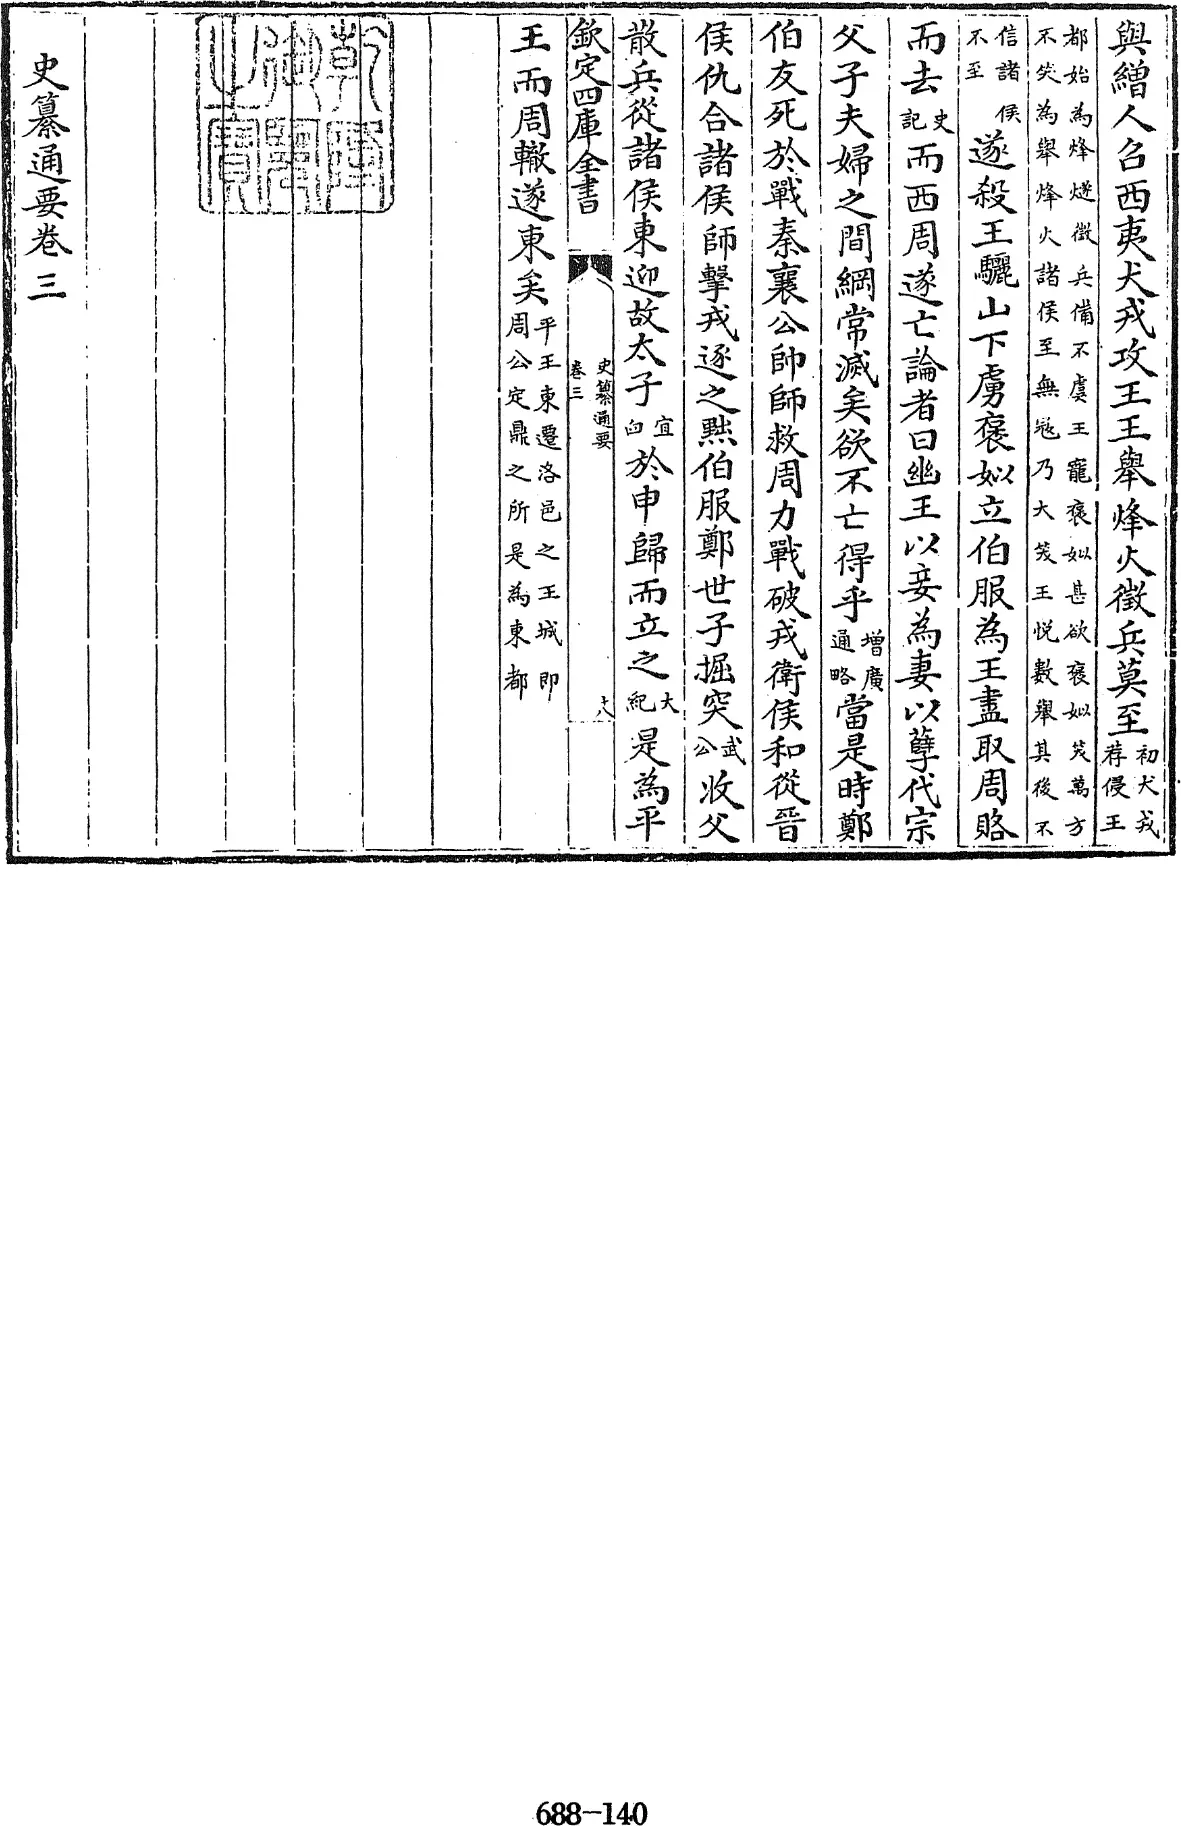 與繒人召西夷犬戎攻王王舉烽火徵兵莫至初犬戎荐侵王
都始為烽燧徵兵備不虞王寵褒姒甚欲褒姒笑萬方
不笑為舉烽火諸侯至無寇乃大笑王悅數舉其後不
信諸侯不至遂殺王驪山下虜褒姒立伯服為王盡取周賂
而去史記而西周遂亡論者曰幽王以妾為妻以孽代宗
父子夫婦之間綱常滅矣欲不亡得乎增廣通略當是時鄭
伯友死於戰秦襄公帥師救周力戰破戎衛侯和從晉
侯仇合諸侯師擊戎逐之黜伯服鄭世子掘突武公收父
散兵從諸侯東迎故太子宜臼於申歸而立之大紀是為平
欽定四庫全書
史纂通要
卷三
十八
王而周轍遂東矣平王東遷洛邑之王城即周公定鼎之所是為東都
乾隆御覽之寶
史纂通要卷三
688-140